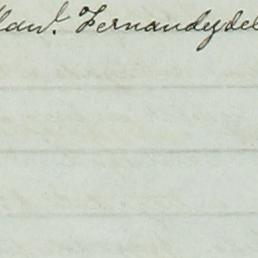 Man.l Fernandez del